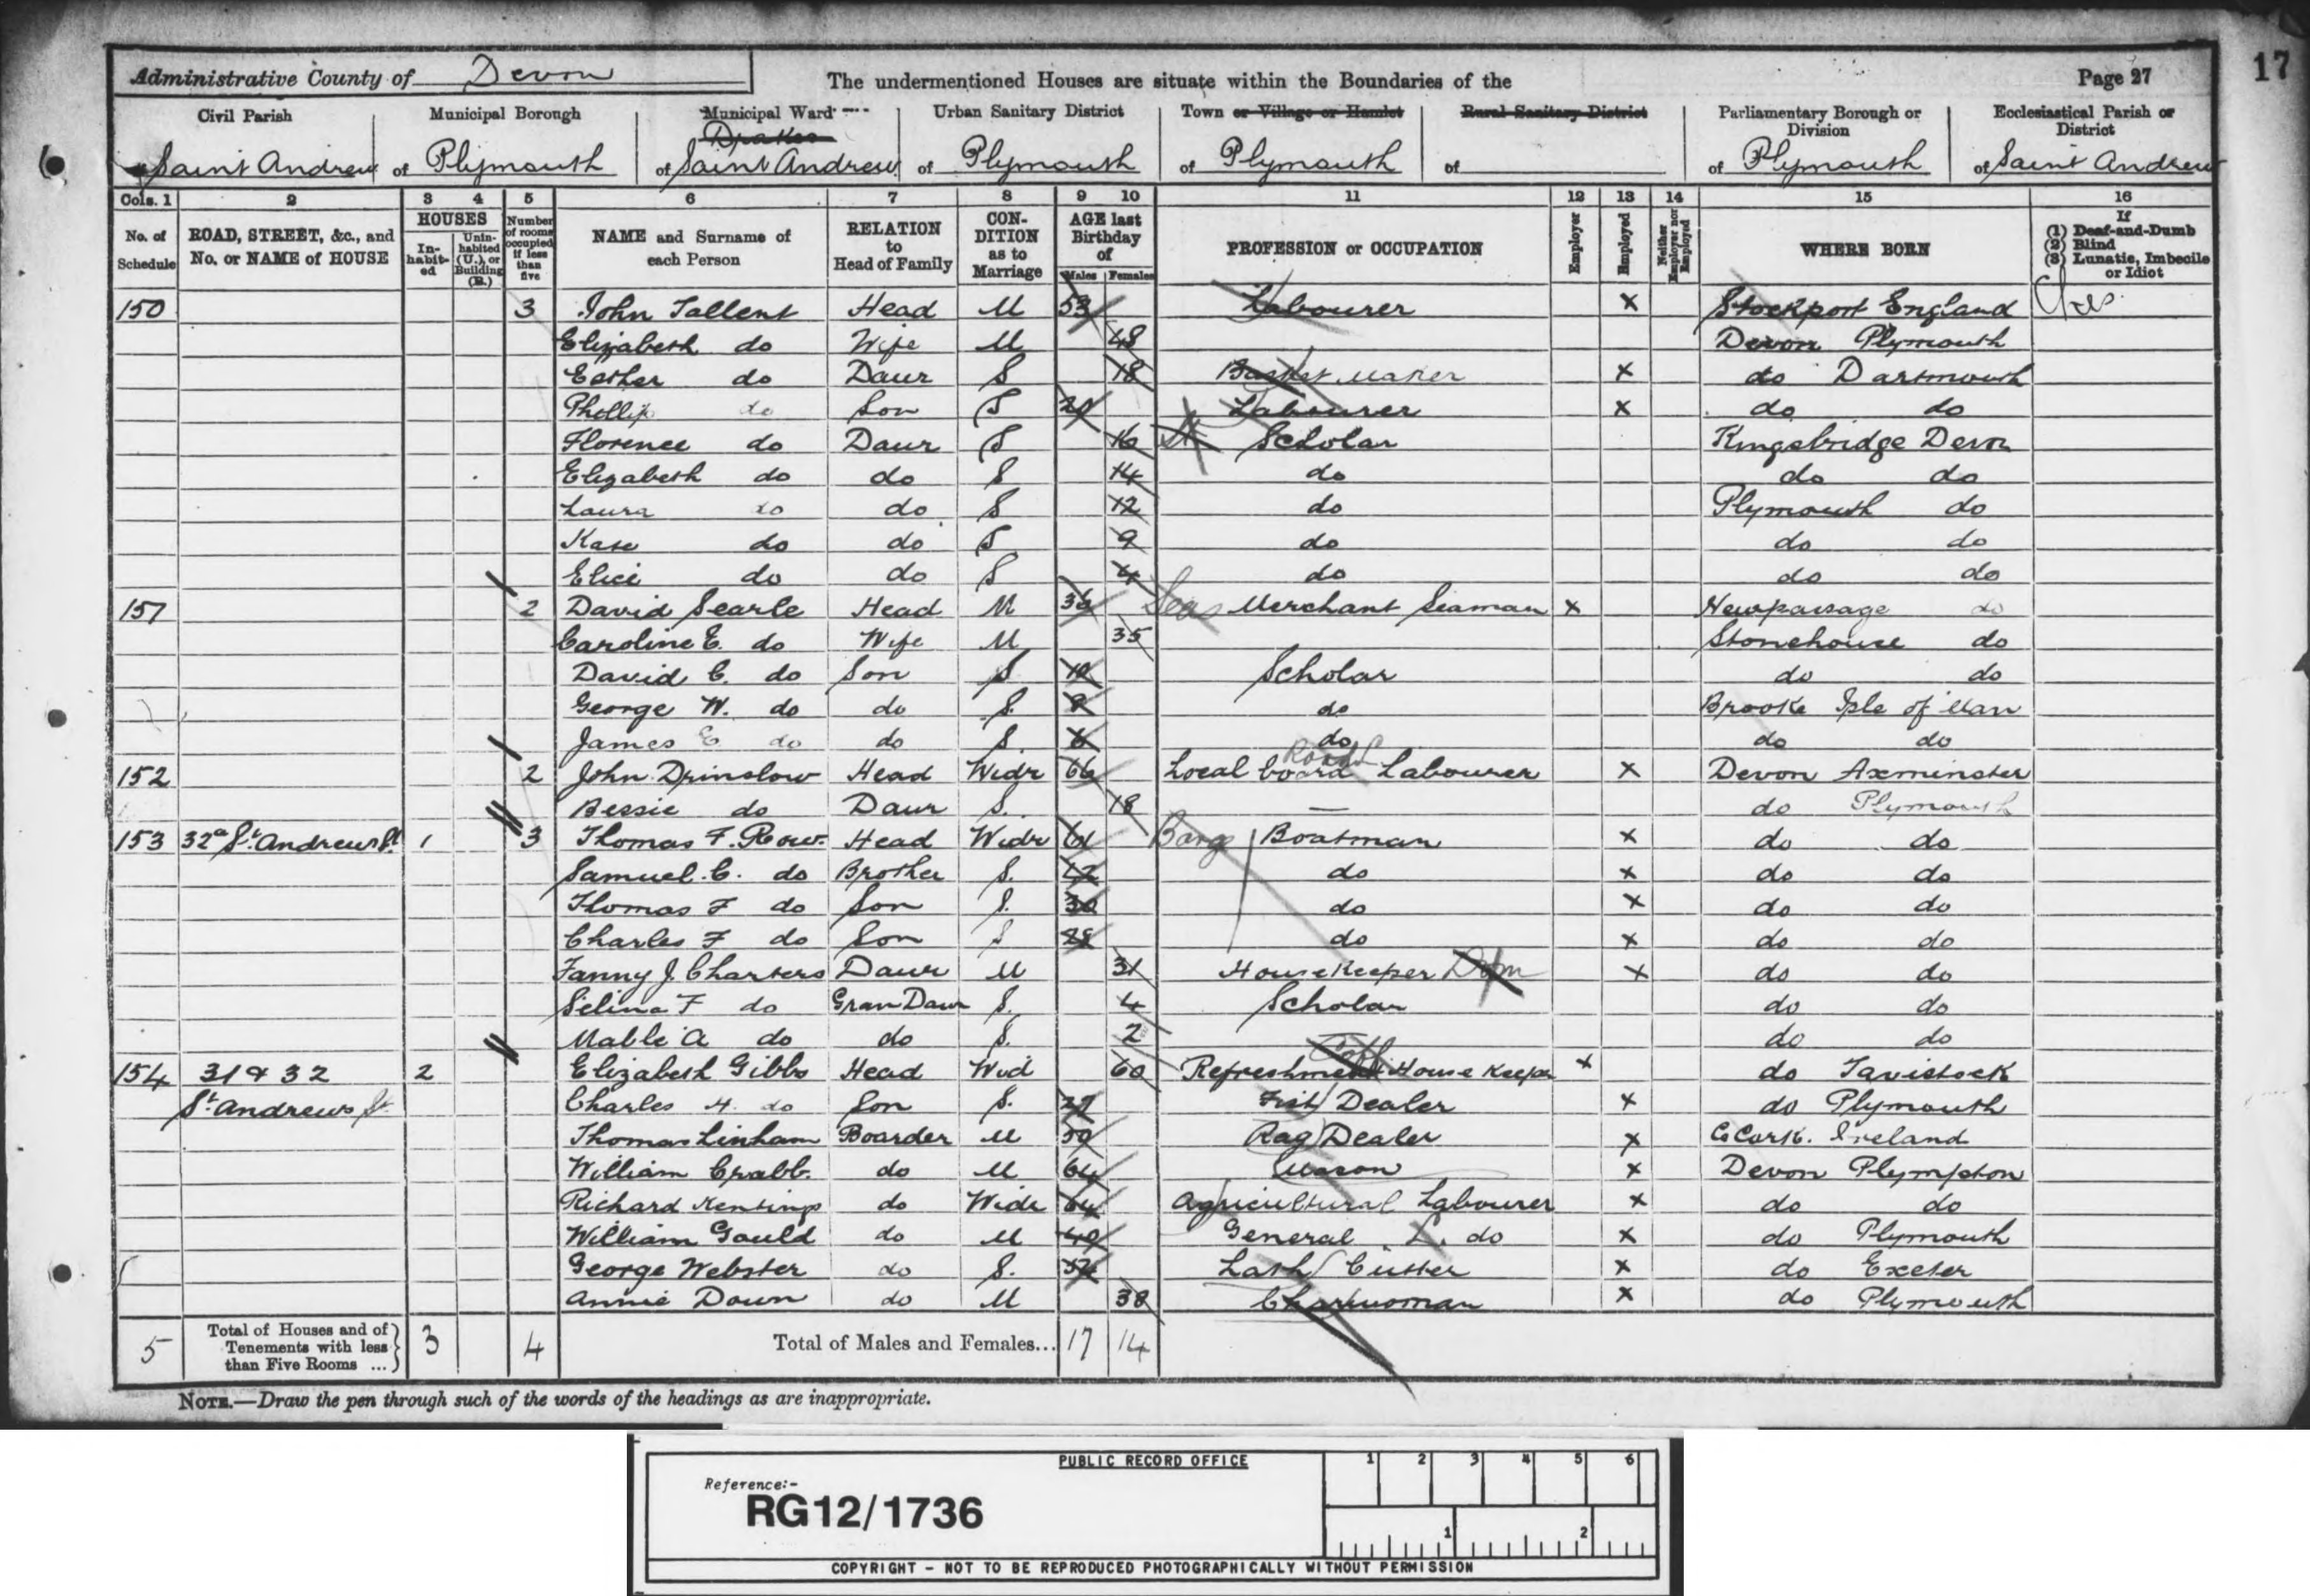 17
Administrative County of Devon The undermentioned Houses are situate within the Boundaries of the Page 27
Civil Parish Municipal Borough Municipal Ward Urban Sanitary District Town or Village or Hamlet Rural Sanitary District Parliamentary Borough or Division Ecclesiastical Parish or District
Drake
of Saint Andrew of Plymouth of Saint Andrew of Plymouth of Plymouth of of Plymouth of Saint Andrew
Cols. 1 2 3 4 5 6 7 8 9 10 11 12 13 14 15 16
No. of Schedule ROAD, STREET, &c., and No. or NAME of HOUSE HOUSES In-habit-ed Unin-habited (U.), or Building (B.) Number of rooms occupied if less than five NAME and Surname of each Person RELATION to Head of Family CON-DITION as to Marriage AGE last Birthday of Males Females PROFESSION or OCCUPATION Employer Employed Neither Employer nor Employed WHERE BORN If (1) Deaf-and-Dumb (2) Blind (3) Lunatic, Imbecile or Idiot
150 3 John Tallent Head M 53 Labourer x Stockport England
Elizabeth do Wife M 48 Devon Plymouth
Esther do Daur S 18 Basket Maker x do Dartmouth
Phillip do Son S 20 Labourer x do do
Florence do Daur S 16 Scholar Kingsbridge Devon
Elizabeth do do S 14 do do do
Laura do do S 12 do Plymouth do
Kate do do S 9 do do do
Elici do do S 4 do do do
151 2 David Searle Head M 36 Seas Merchant Seaman x Newpassage do
Caroline E. do Wife M 35 Stonehouse do
David C. do Son S 10 Scholar do do
George W. do do S. 8 do Brooke Isle of Man
James E do do S. 6 do do do
152 2 John Drinslow Head Widr 66 Local board Road L Labourer x Devon Axminster
Bessie do Daur S. 18 — do Plymouth
153 32a St. Andrew St. 1 3 Thomas F. Row. Head Widr 61 Barge Boatman x do do
Samuel C. do Brother S. 42 do x do do
Thomas F do Son S. 30 do x do do
Charles F do Son S 28 do x do do
Fanny J. Charters Daur M 31 HouseKeeper Dom x do do
Selina F do Gran Daur S. 4 Scholar do do
Mable A do do S. 2 do do
154 31 & 32 2 Elizabeth Gibbs Head Wid 60 Refreshment House Keeper Coff x do Tavistock
St. Andrews St Charles H. do Son S. 27 Fish Dealer x do Plymouth
Thomas Linham Boarder M 50 Rag Dealer x C Cork. Ireland
William Crabb. do M 64 Mason x Devon Plympton
Richard do Widr 64 Agricultural Labourer x do do
William Gould do M 40 General L. do x do Plymouth
George Webster do S. 52 Lath Cutter x do Exeter
Annie Down do M 38 Charwoman x do Plymouth
5 Total of Houses and of Tenements with less than Five Rooms ... 3 4 Total of Males and Females... 17 14
NOTE.—Draw the pen through such of the words of the headings as are inappropriate.
PUBLIC RECORD OFFICE 1 2 3 4 5 6
Reference:-
RG12/1736
1 2
COPYRIGHT – NOT TO BE REPRODUCED PHOTOGRAPHICALLY WITHOUT PERMISSION